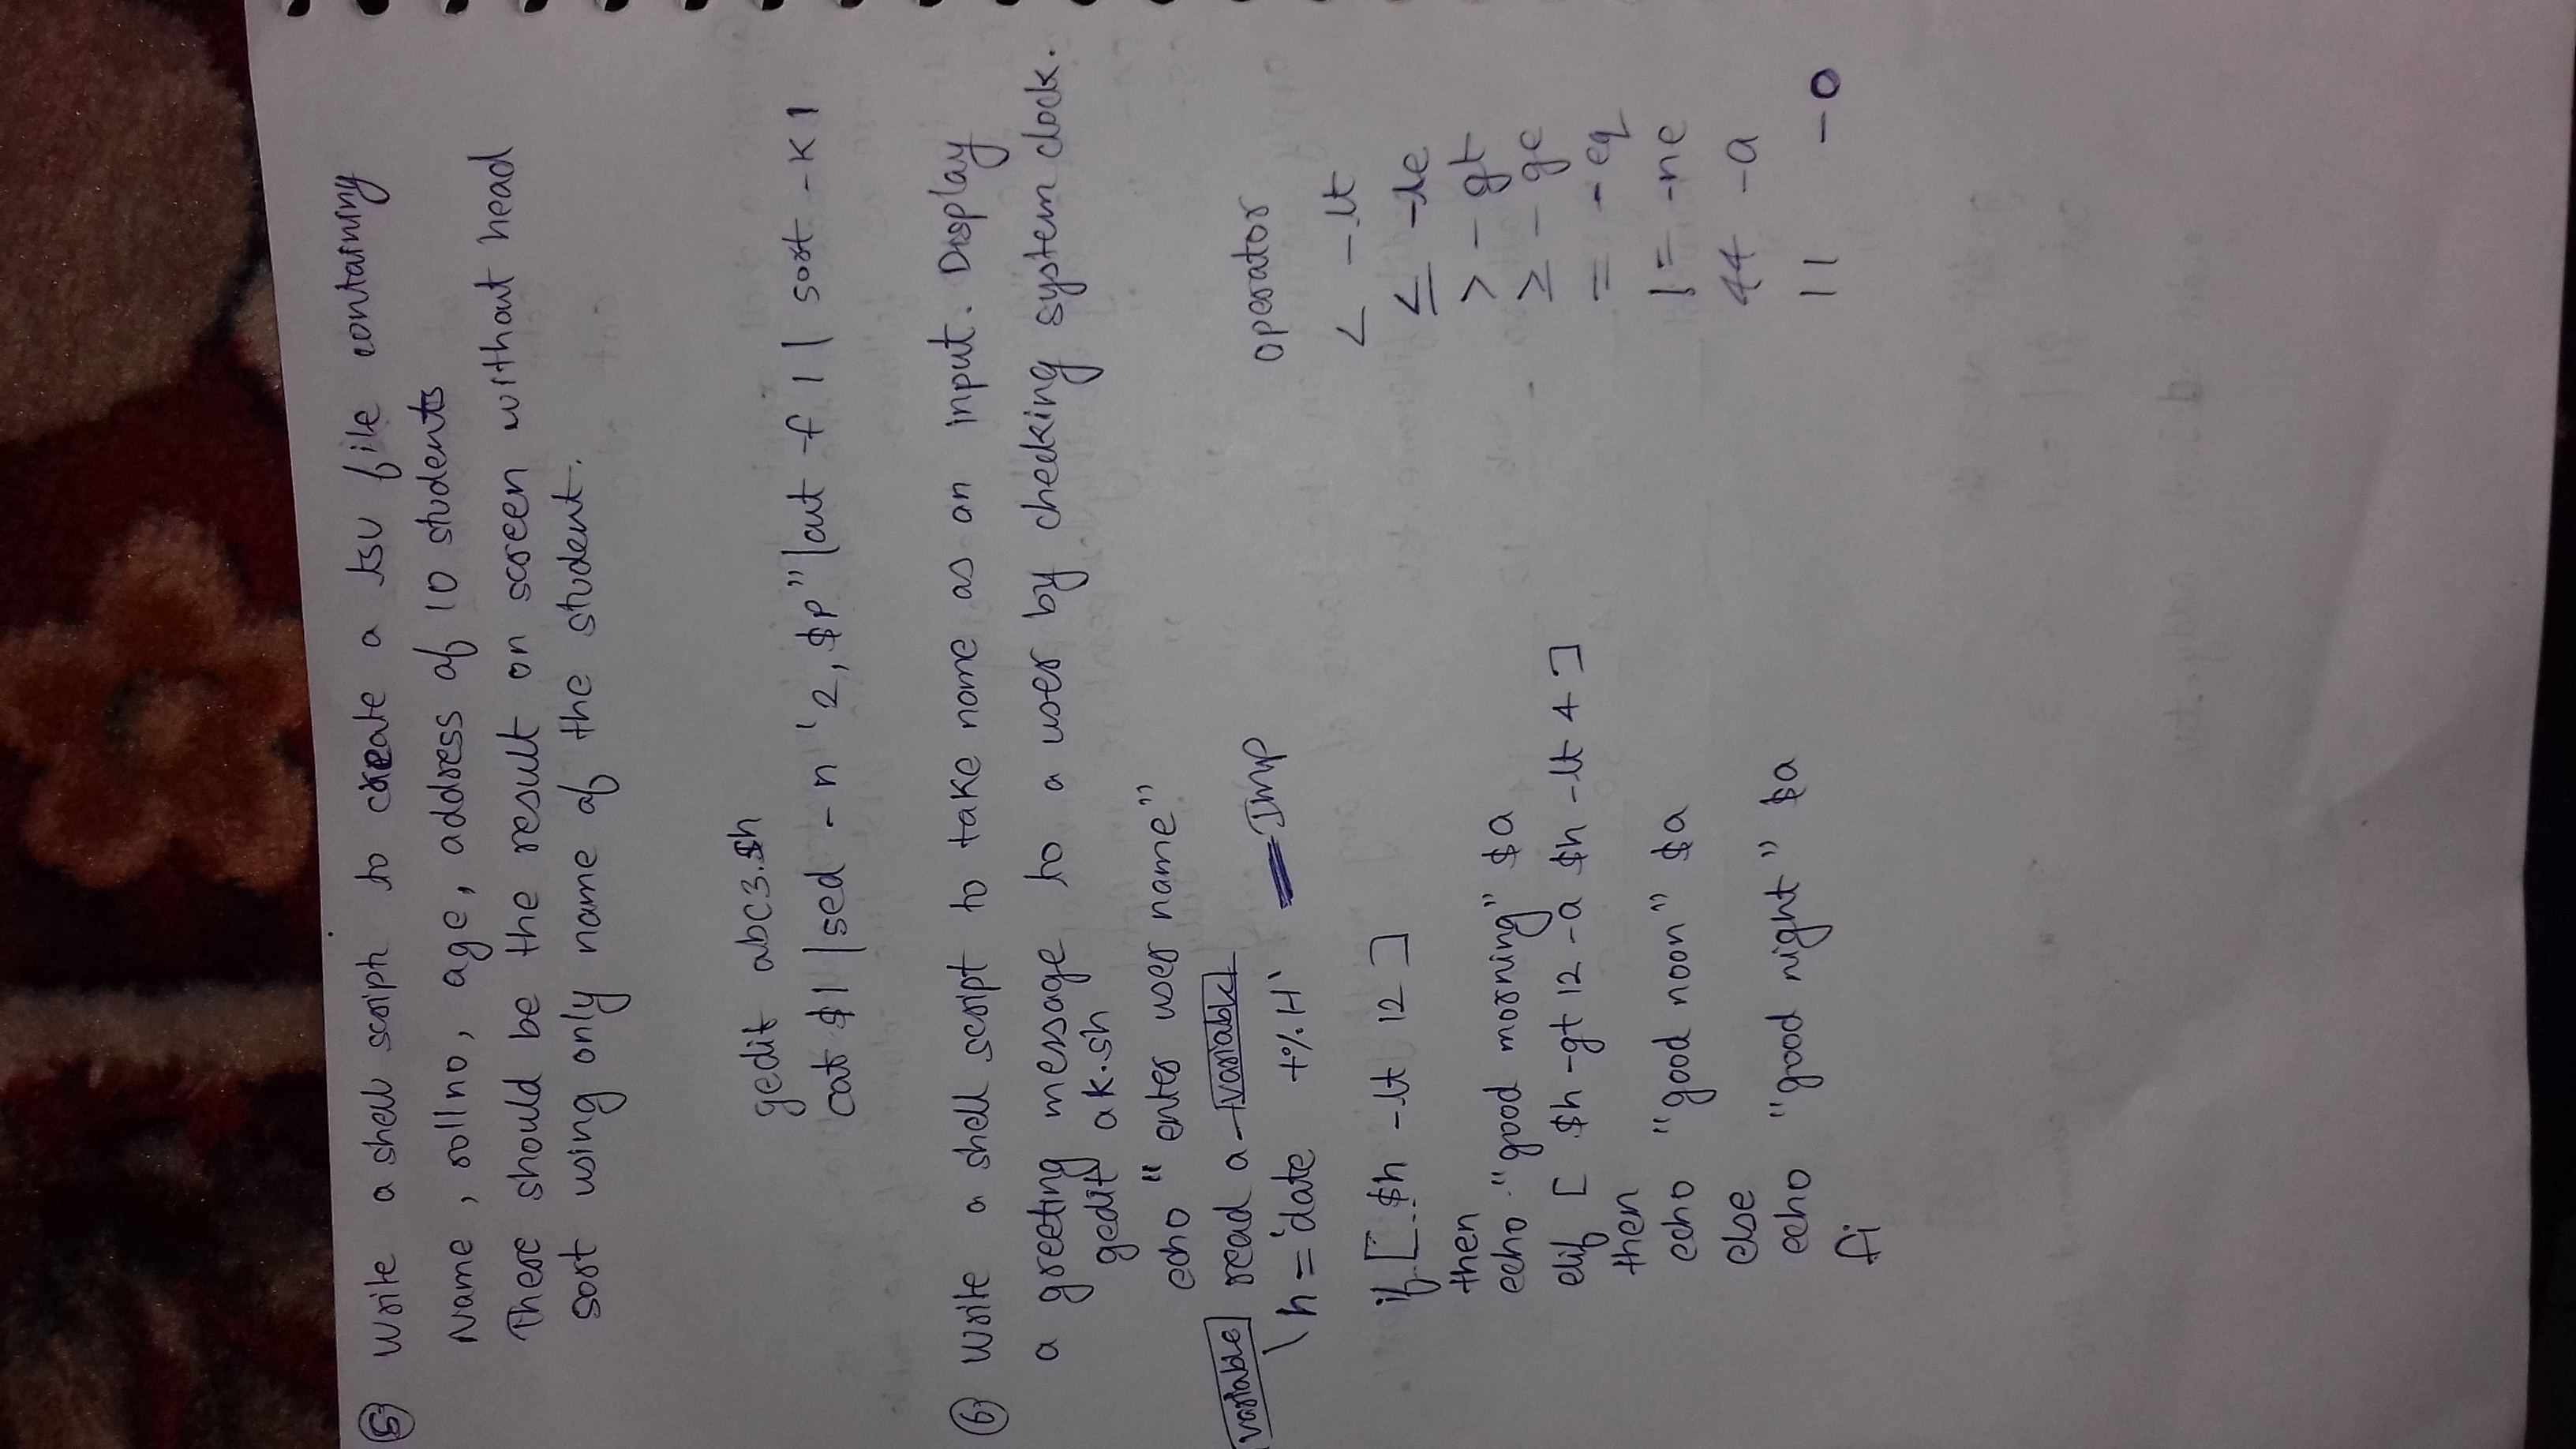 ⑤ Write a shell script to create a tsv file containing
Name, rollno, age, address of 10 students
There should be the result on screen without head
sort using only name of the student.
gedit abc3.sh
cat $1 | sed -n '2,$p" | cut -f 1 | sort -k 1
⑥ Write a shell script to take name as an input. Display
a greeting message to a user by checking system clock.
gedit ak.sh
echo "enter user name"
variable read a - variable
h = `date +%H` - Imp
operator
if [ $h -lt 12 ]
< -lt
then
≤ -le
echo "good morning" $a
> - gt
elif [ $h -gt 12 -a $h -lt 4 ]
≥ - ge
then
= -eq
echo "good noon" $a
!= -ne
else
&& -a
echo "good night" $a
|| -o
fi